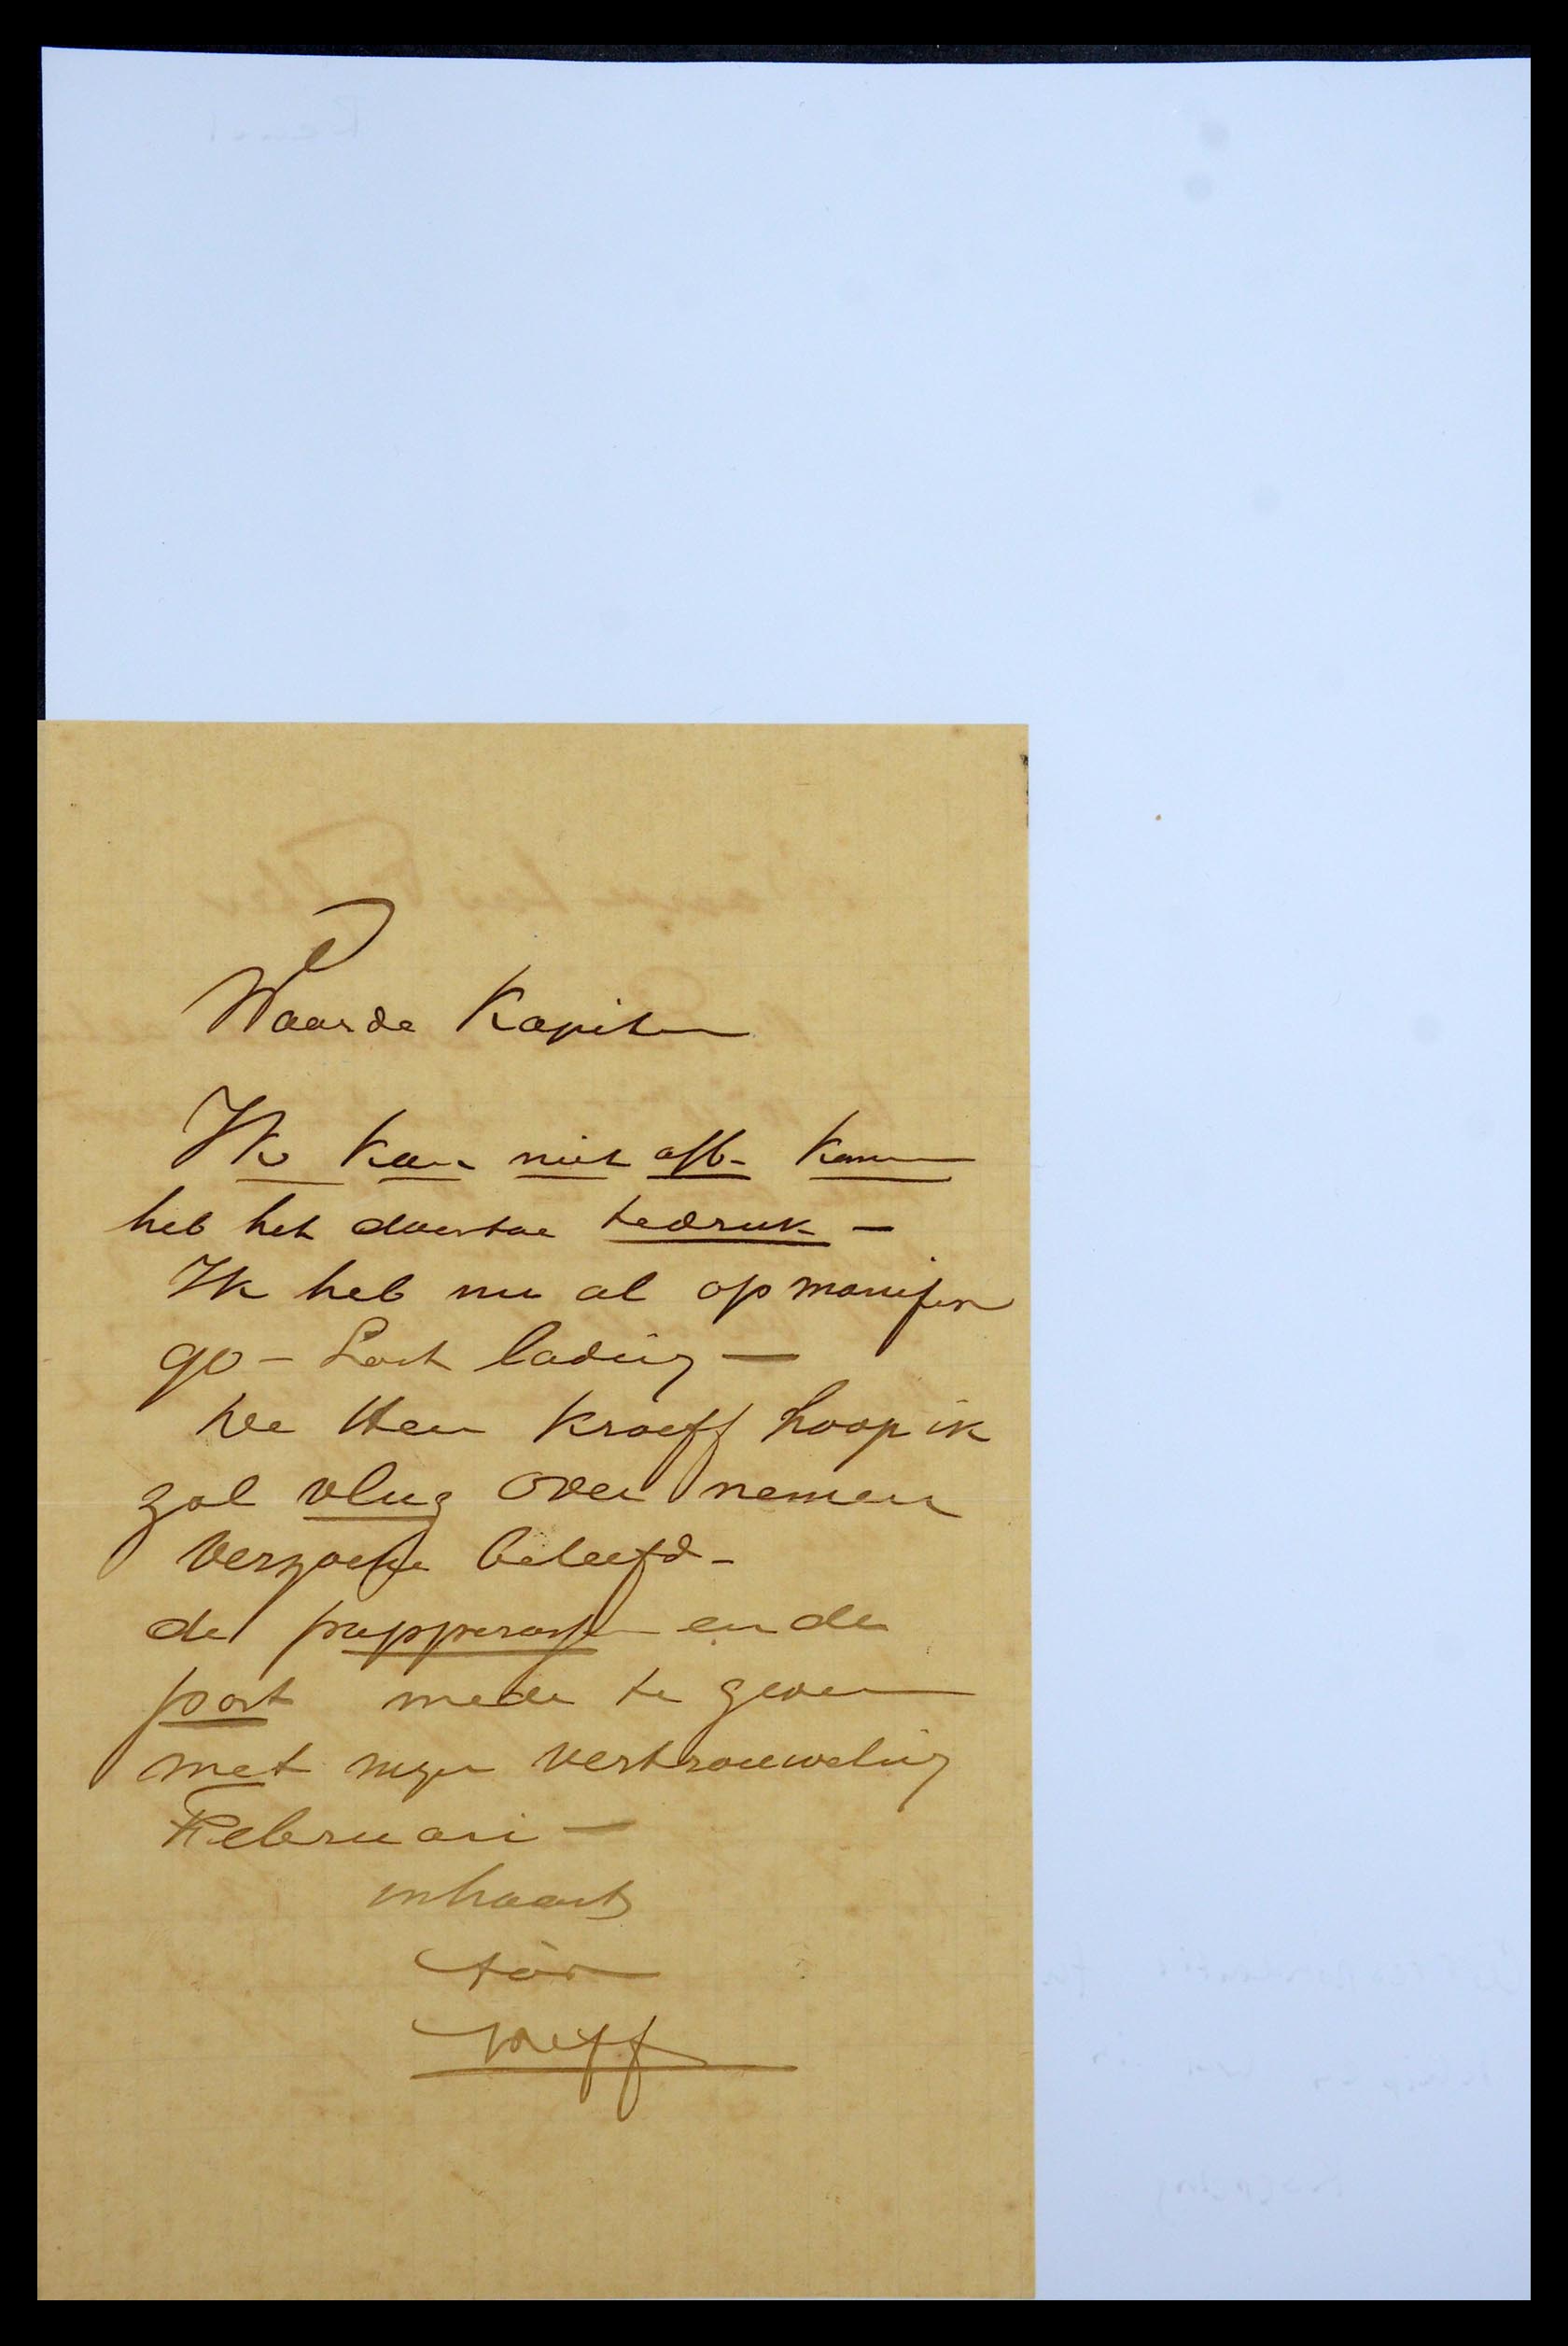 Waarde Kapitein
Ik kan niet aff- komen
heb het daartoe te druk -
Ik heb nu al op manifen
90 - Last lading -
De Heer Kroeff hoop ik
zal vlug over nemen
Verzoeke beleefd -
de papperassen en de
post mede te geven
met mijn vertrouweling
Februari -
in haast
tav